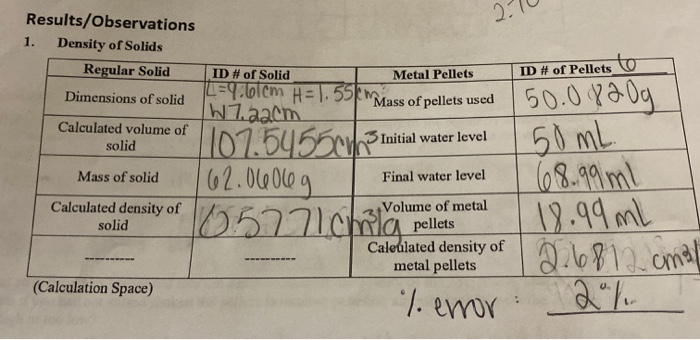 2.70
Results/Observations
1. Density of Solids
Regular Solid ID # of Solid Metal Pellets ID # of Pellets 6
Dimensions of solid L=9.61cm H=1.55cm W7.22cm Mass of pellets used 50.0820g
Calculated volume of solid 107.5455cm³ Initial water level 50 mL
Mass of solid 62.0606g Final water level 68.99ml
Calculated density of solid 0.5771cm³/g Volume of metal pellets 18.99 mL
---------- ---------- Calculated density of metal pellets 2.6812 cm3/
(Calculation Space)
% error : 2%